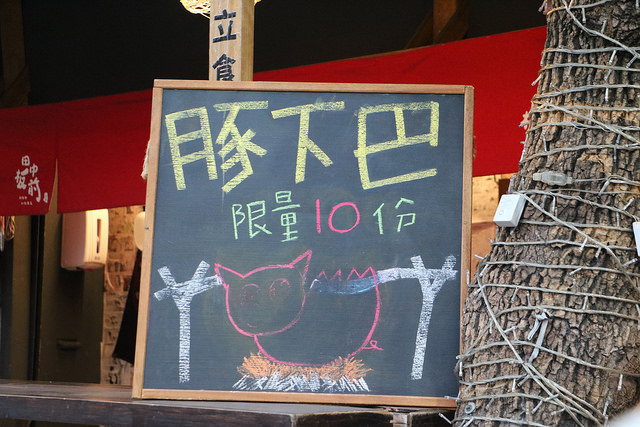 立食
豚下巴
限量10份
田中
坂前